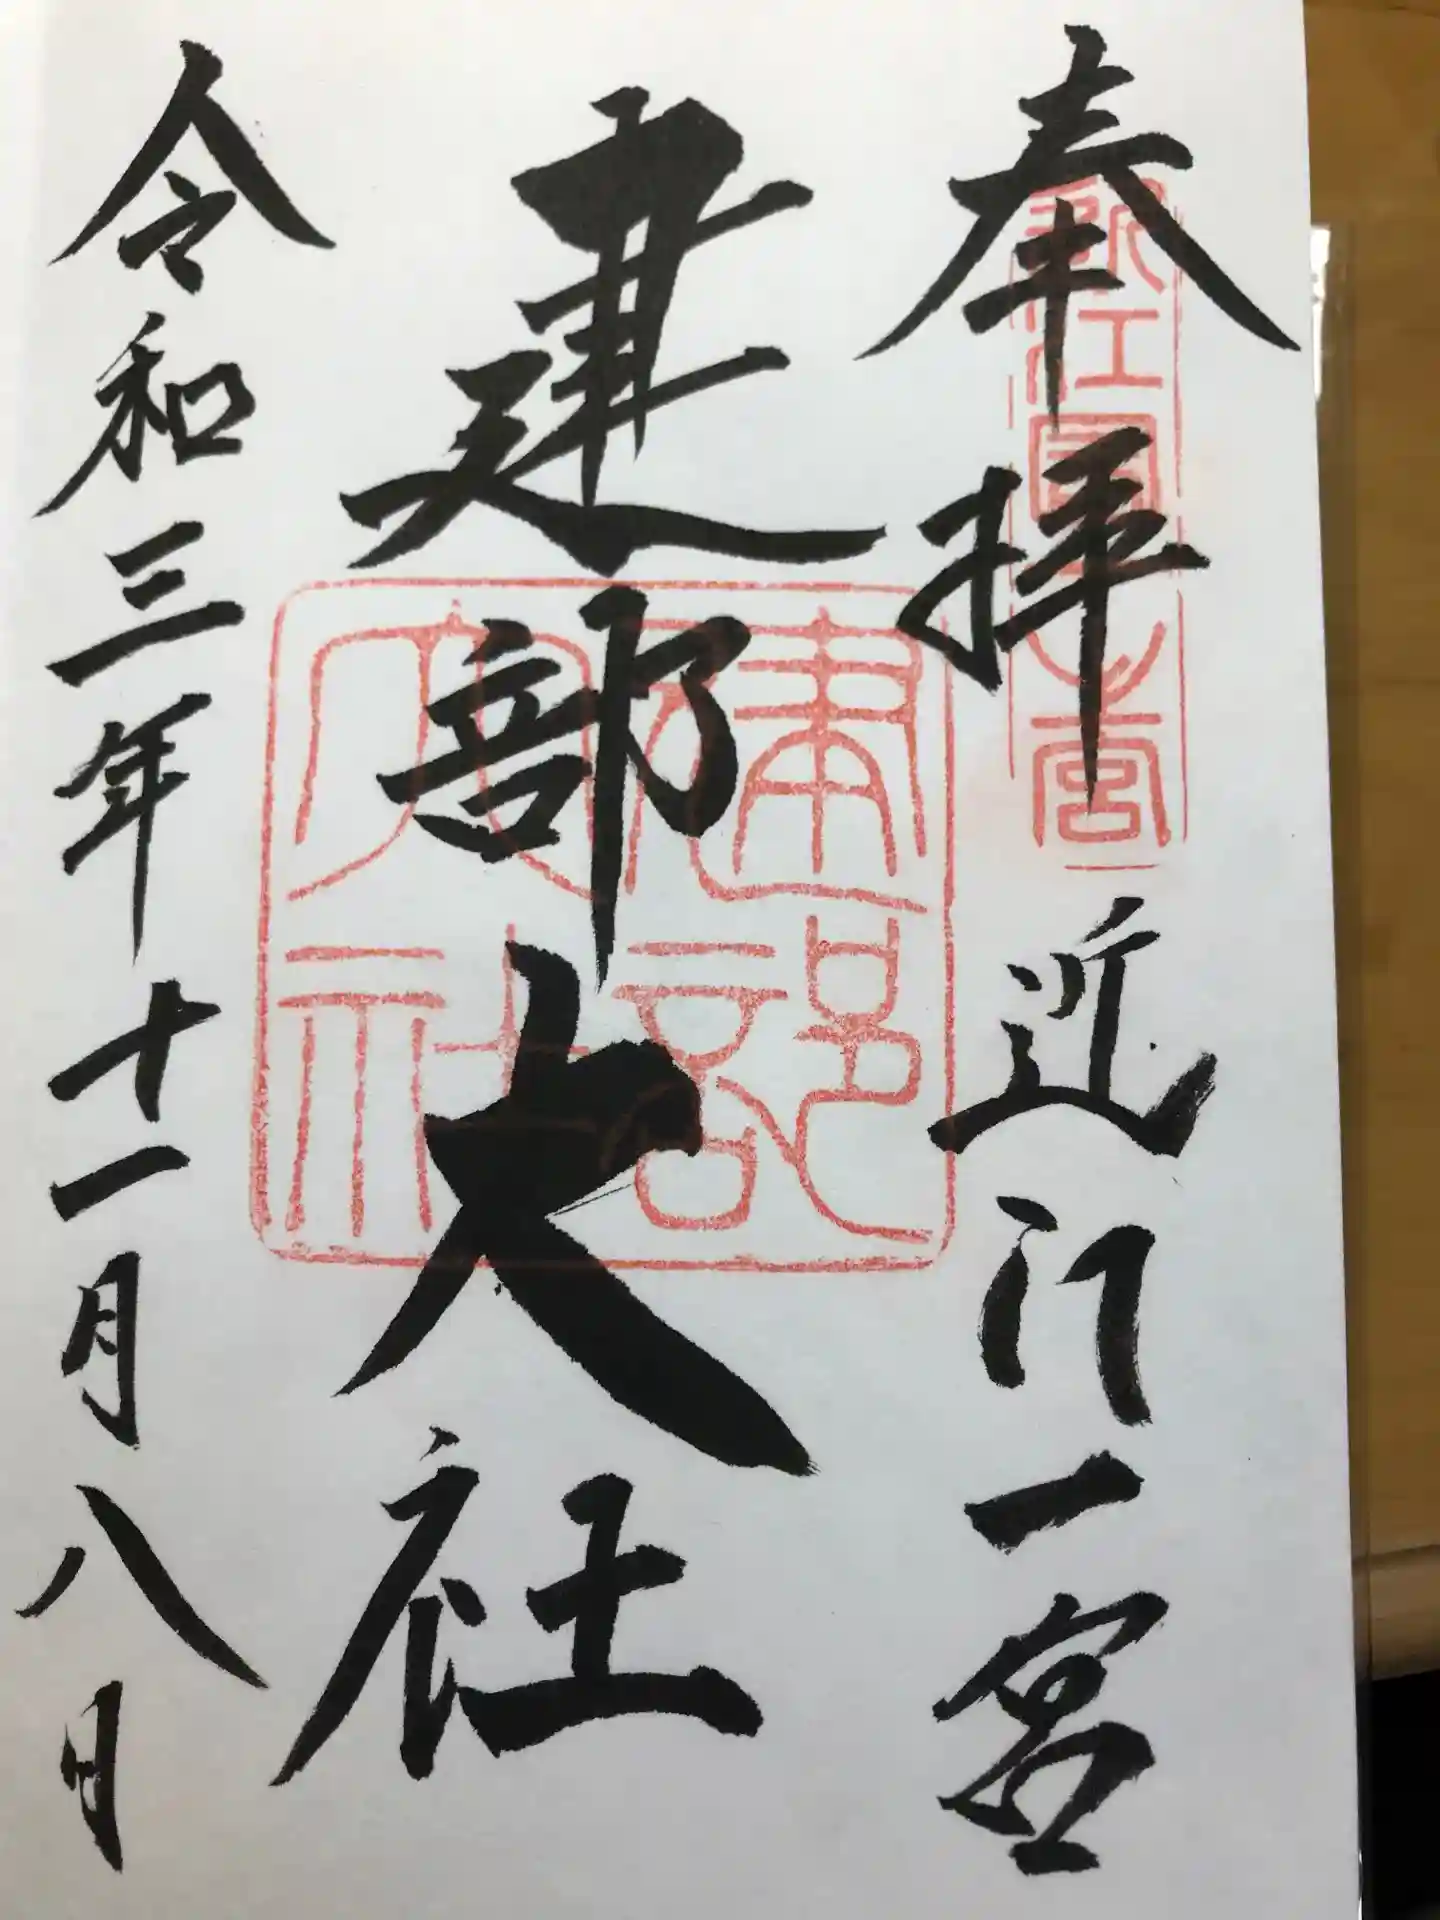 奉拝
近江一宮
近江國一之宮
建部大社
建部大社
令和三年十一月八日